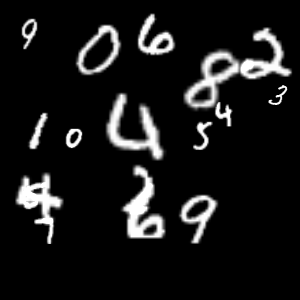 9 0 6 8 2 3
1 0 4 5 4
7 6 9